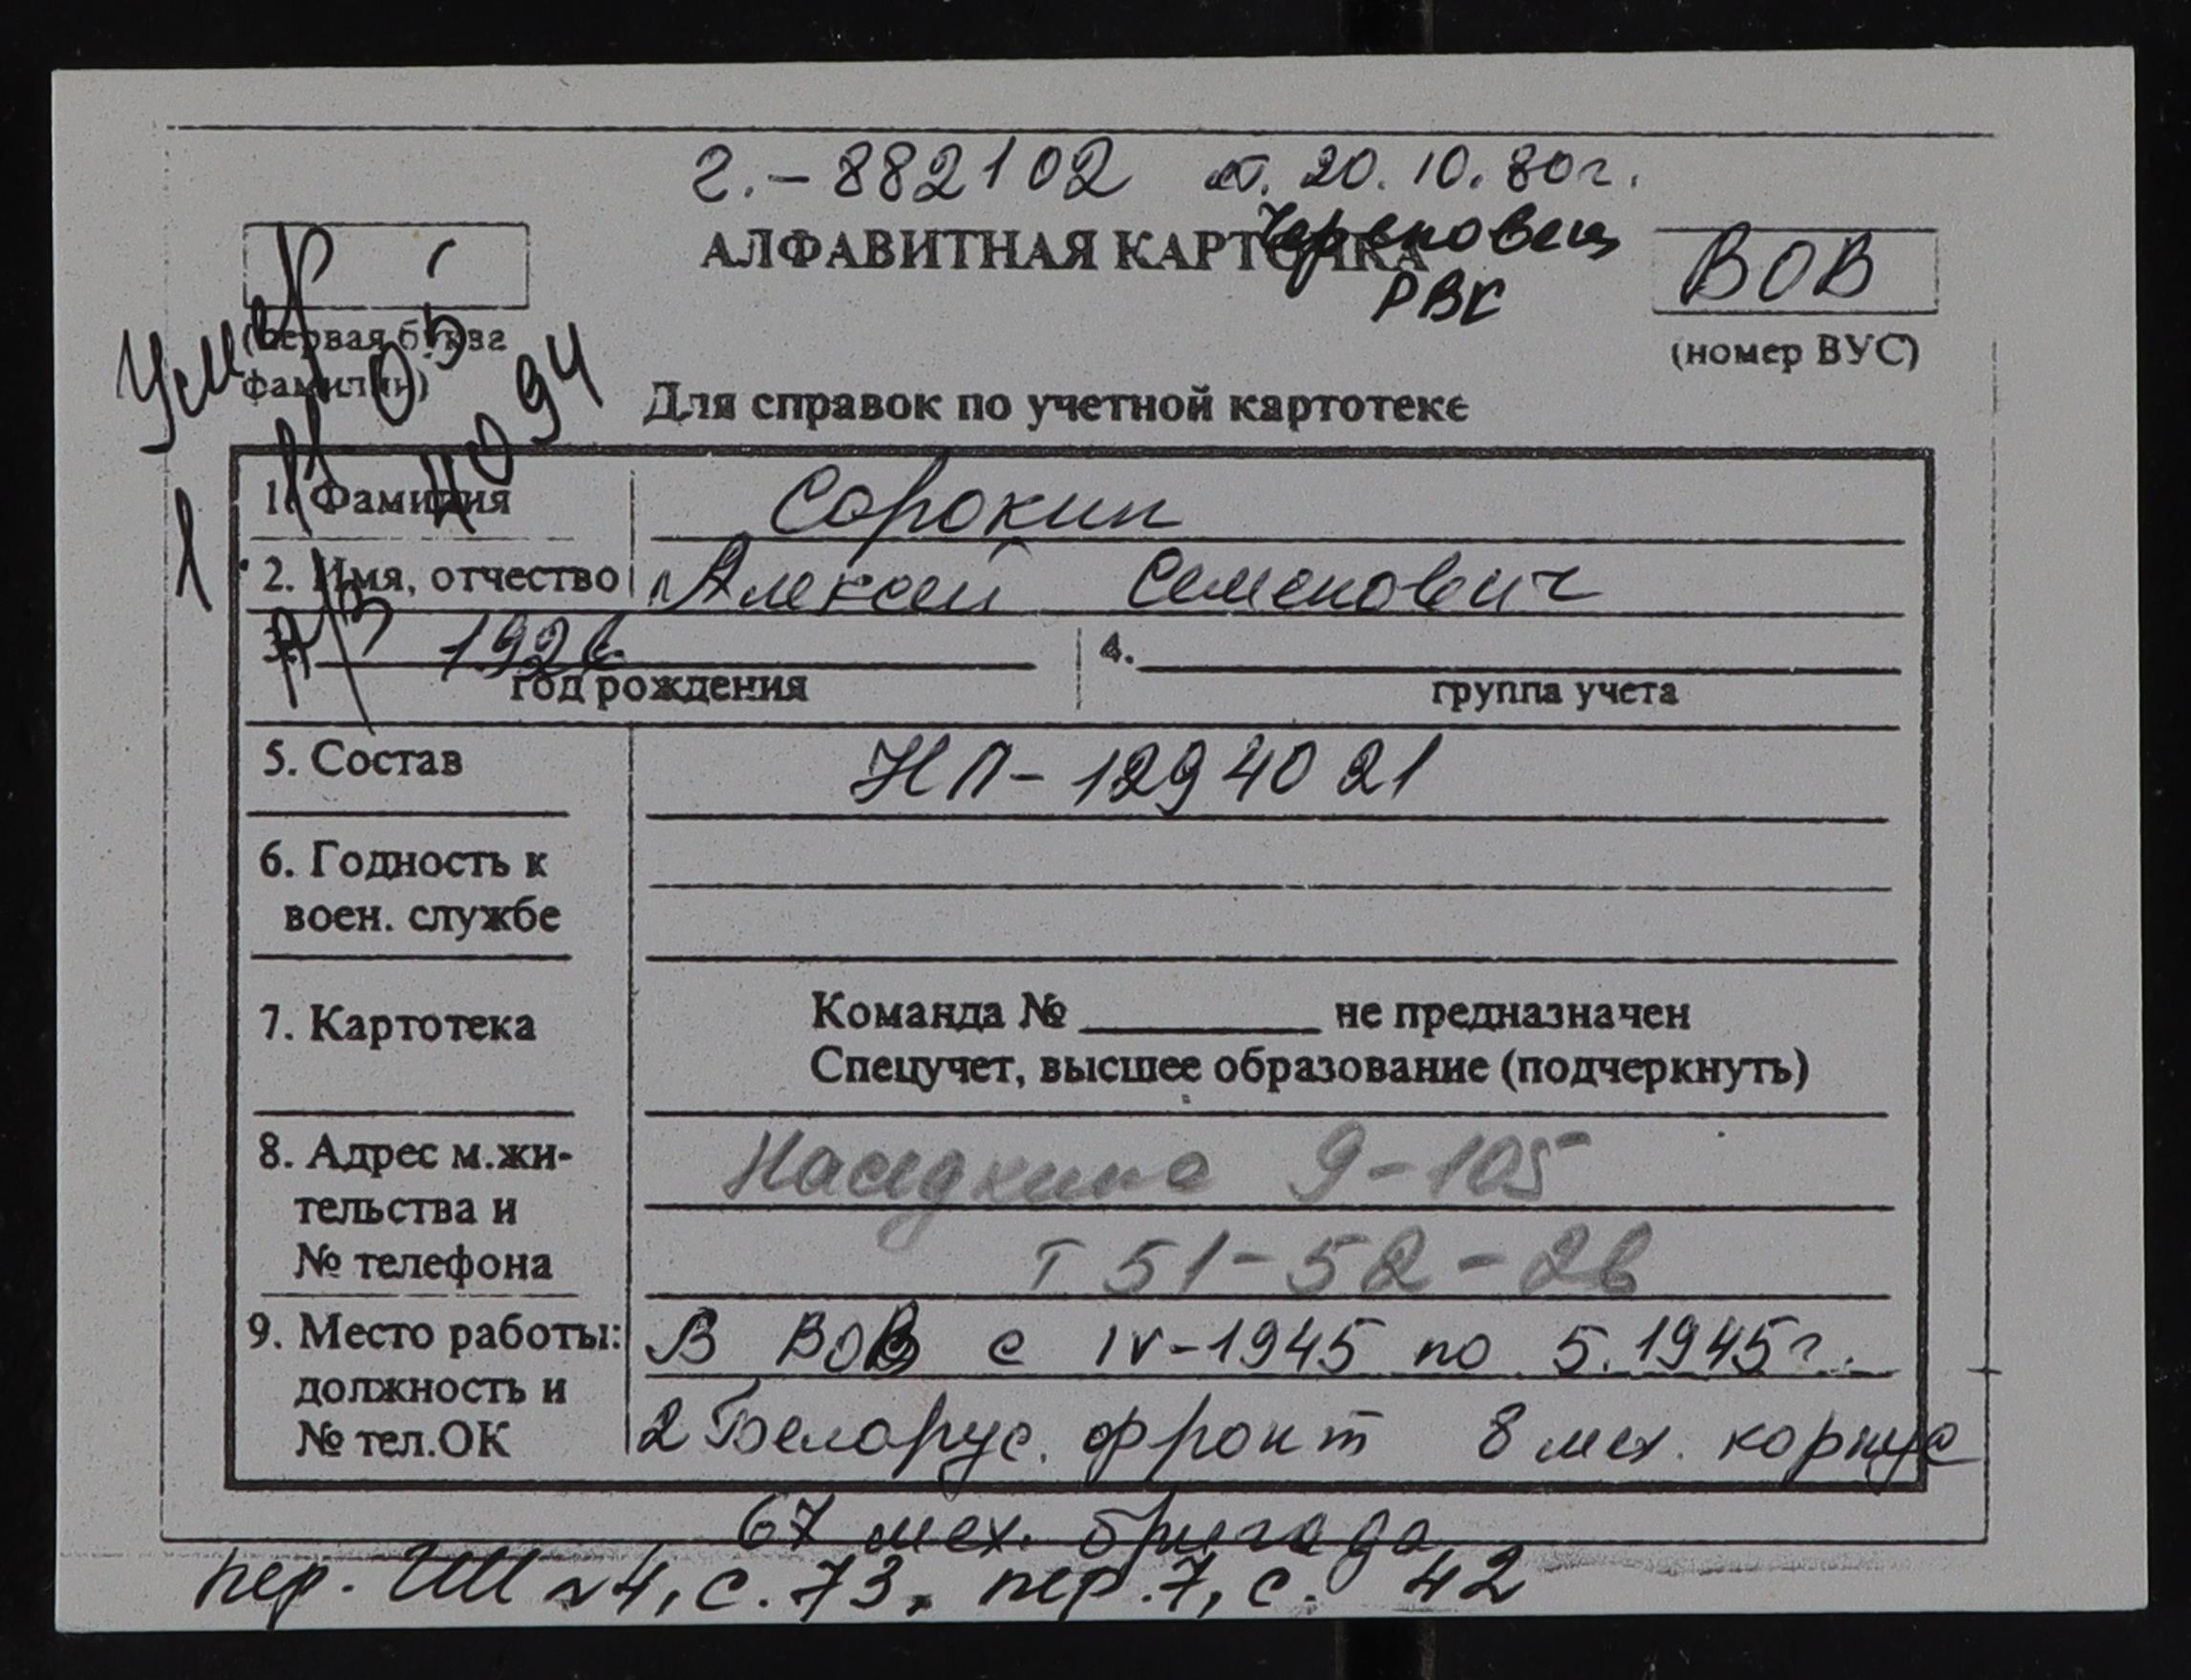 г.-882102 от. 20.10.80г.
Череповец
АЛФАВИТНАЯ КАРТОЧКА
РВК
ВОВ
(первая буква
фамилии)
(номер ВУС)
Умер
94
Для справок по учетной картотеке
1. Фамилия Сорокин
2. Имя, отчество Алексей Семенович
3. 1926 4.
год рождения группа учета
5. Состав НП-1294021
6. Годность к
воен. службе
7. Картотека Команда № не предназначен
Спецучет, высшее образование (подчеркнуть)
8. Адрес м.жи-
тельства и
№ телефона
Наседкина 9-105
т 51-52-26
9. Место работы:
должность и
№ тел.ОК
В ВОВ с IV-1945 по 5.1945г.
2 Белорус. фронт 8 мех. корпус
67 мех. бригада
пер. 4, с. 73, пер. 7, с. 42